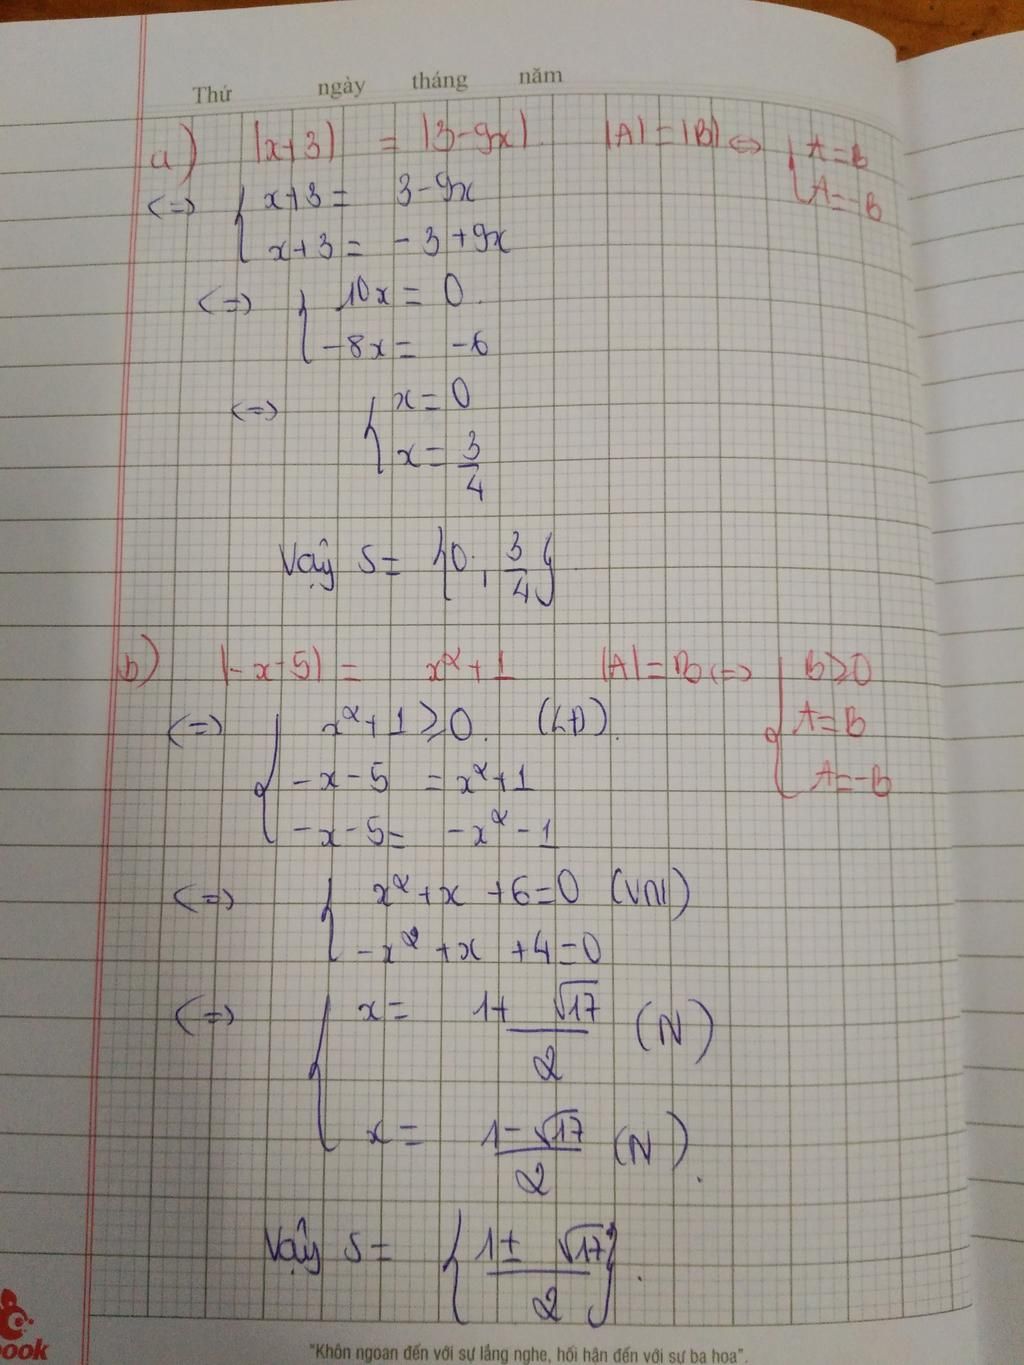 Thứ ngày tháng năm
a) |x+3| = |3-9x|. |A|=|B| <=> { A=B
A=-B
<=> { x+3= 3-9x
x+3= -3+9x
<=> { 10x= 0.
-8x= -6
<=> { x=0
x= 3/4
Vậy S= {0; 3/4}
b) |-x-5| = x²+1 |A|=B <=> { B≥0
A=B
A=-B
<=> { x²+1≥0. (LĐ).
-x-5 = x²+1
-x-5= -x²-1
<=> { x²+x+6=0 (VN)
-x²+x+4=0
<=> { x= (1+√17)/2 (N)
x= (1-√17)/2 (N).
Vậy S= {(1±√17)/2}.
ook
"Khôn ngoan đến với sự lắng nghe, hối hận đến với sự ba hoa".